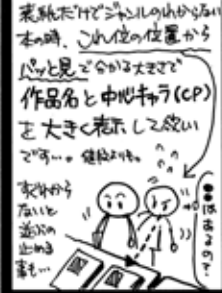 表紙だけでジャンルのわからない
本の時、これ位の位置から
パッと見で分かる大きさで
作品名と中心キャラ(CP)
を大きく表示して欲しい
です…。値段よりも。
すぐわから
ないと
並ぶの
止める
事も…
●●はあるの?